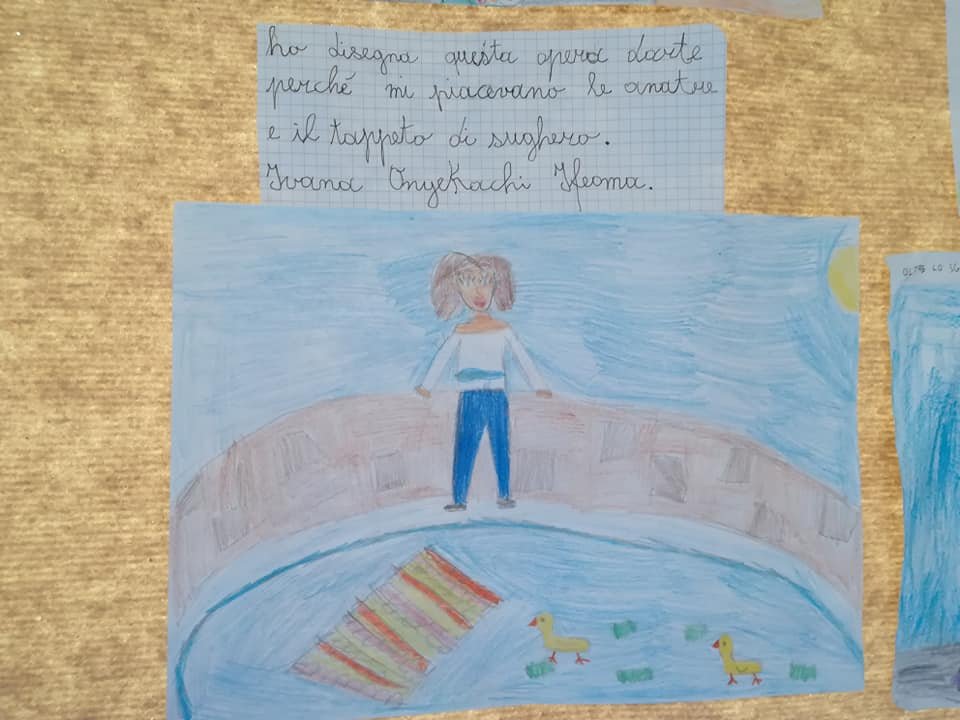 ho disegna questa opera darte
perché mi piacevano le anatre
e il tappeto di sughero.
Ivana Onyekachi Ifeoma.